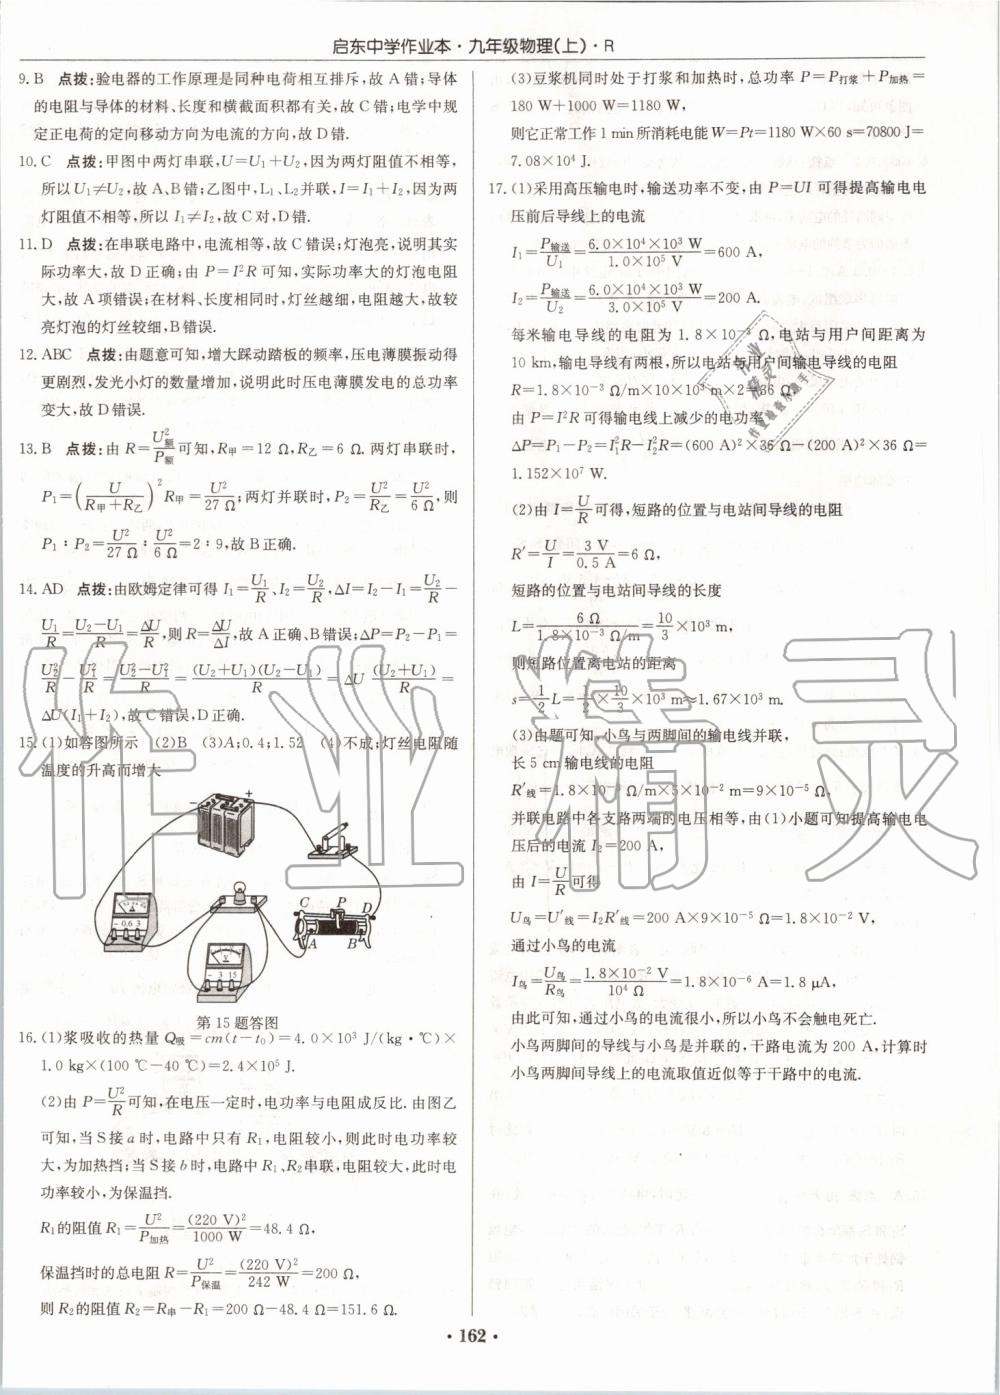 启东中学作业本·九年级物理(上)·R
9. B 点拨:验电器的工作原理是同种电荷相互排斥,故 A 错;导体
的电阻与导体的材料、长度和横截面积都有关,故 C 错;电学中规
定正电荷的定向移动方向为电流的方向,故 D 错.
10. C 点拨:甲图中两灯串联,U=U₁+U₂,因为两灯阻值不相等,
所以 U₁≠U₂,故 A、B 错;乙图中,L₁、L₂并联,I=I₁+I₂,因为两
灯阻值不相等,所以 I₁≠I₂,故 C 对,D 错.
11. D 点拨:在串联电路中,电流相等,故 C 错误;灯泡亮,说明其实
际功率大,故 D 正确;由 P=I²R 可知,实际功率大的灯泡电阻
大,故 A 项错误;在材料、长度相同时,灯丝越细,电阻越大,故较
亮灯泡的灯丝较细,B 错误.
12. ABC 点拨:由题意可知,增大踩动踏板的频率,压电薄膜振动得
更剧烈,发光小灯的数量增加,说明此时压电薄膜发电的总功率
变大,故 D 错误.
13. B 点拨:由 R=U²额/P额可知,R甲=12 Ω,R乙=6 Ω. 两灯串联时,
P₁=(U/(R甲+R乙))²R甲=U²/27 Ω;两灯并联时,P₂=U²/R乙=U²/6 Ω,则
P₁∶P₂=U²/27 Ω∶U²/6 Ω=2∶9,故 B 正确.
14. AD 点拨:由欧姆定律可得 I₁=U₁/R、I₂=U₂/R,ΔI=I₂-I₁=U₂/R-
U₁/R=(U₂-U₁)/R=ΔU/R,则 R=ΔU/ΔI,故 A 正确、B 错误;ΔP=P₂-P₁=
U₂²/R-U₁²/R=(U₂²-U₁²)/R=(U₂+U₁)(U₂-U₁)/R=ΔU(U₂+U₁)/R=
ΔU(I₁+I₂),故 C 错误,D 正确.
15. (1)如答图所示 (2)B (3)A;0.4;1.52 (4)不成;灯丝电阻随
温度的升高而增大
- +
C P D
A B
- 0.6 3
A
V
- 3 15
第 15 题答图
16. (1)浆吸收的热量 Q吸=cm(t-t₀)=4.0×10³ J/(kg·℃)×
1.0 kg×(100 ℃-40 ℃)=2.4×10⁵ J.
(2)由 P=U²/R可知,在电压一定时,电功率与电阻成反比. 由图乙
可知,当 S 接 a 时,电路中只有 R₁,电阻较小,则此时电功率较
大,为加热挡;当 S 接 b 时,电路中 R₁、R₂串联,电阻较大,此时电
功率较小,为保温挡.
R₁的阻值 R₁=U²/P加热=(220 V)²/1000 W=48.4 Ω,
保温挡时的总电阻 R=U²/P保温=(220 V)²/242 W=200 Ω,
则 R₂的阻值 R₂=R串-R₁=200 Ω-48.4 Ω=151.6 Ω.
(3)豆浆机同时处于打浆和加热时,总功率 P=P打浆+P加热=
180 W+1000 W=1180 W,
则它正常工作 1 min 所消耗电能 W=Pt=1180 W×60 s=70800 J=
7.08×10⁴ J.
17. (1)采用高压输电时,输送功率不变,由 P=UI 可得提高输电电
压前后导线上的电流
I₁=P输送/U₁=6.0×10⁴×10³ W/1.0×10⁵ V=600 A,
I₂=P输送/U₂=6.0×10⁴×10³ W/3.0×10⁵ V=200 A.
每米输电导线的电阻为 1.8×10⁻³ Ω,电站与用户间距离为
10 km,输电导线有两根,所以电站与用户间输电导线的电阻
R=1.8×10⁻³ Ω/m×10×10³ m×2=36 Ω,
由 P=I²R 可得输电线上减少的电功率
ΔP=P₁-P₂=I₁²R-I₂²R=(600 A)²×36 Ω-(200 A)²×36 Ω=
1.152×10⁷ W.
(2)由 I=U/R可得,短路的位置与电站间导线的电阻
R′=U/I=3 V/0.5 A=6 Ω,
短路的位置与电站间导线的长度
L=6 Ω/1.8×10⁻³ Ω/m=10/3×10³ m,
则短路位置离电站的距离
s=1/2L=1/2×10/3×10³ m≈1.67×10³ m.
(3)由题可知,小鸟与两脚间的输电线并联,
长 5 cm 输电线的电阻
R′线=1.8×10⁻³ Ω/m×5×10⁻² m=9×10⁻⁵ Ω,
并联电路中各支路两端的电压相等,由(1)小题可知提高输电电
压后的电流 I₂=200 A,
由 I=U/R可得
U鸟=U′线=I₂R′线=200 A×9×10⁻⁵ Ω=1.8×10⁻² V,
通过小鸟的电流
I鸟=U鸟/R鸟=1.8×10⁻² V/10⁴ Ω=1.8×10⁻⁶ A=1.8 μA,
由此可知,通过小鸟的电流很小,所以小鸟不会触电死亡.
小鸟两脚间的导线与小鸟是并联的,干路电流为 200 A,计算时
小鸟两脚间导线上的电流取值近似等于干路中的电流.
作业精灵
作业精灵
· 162 ·